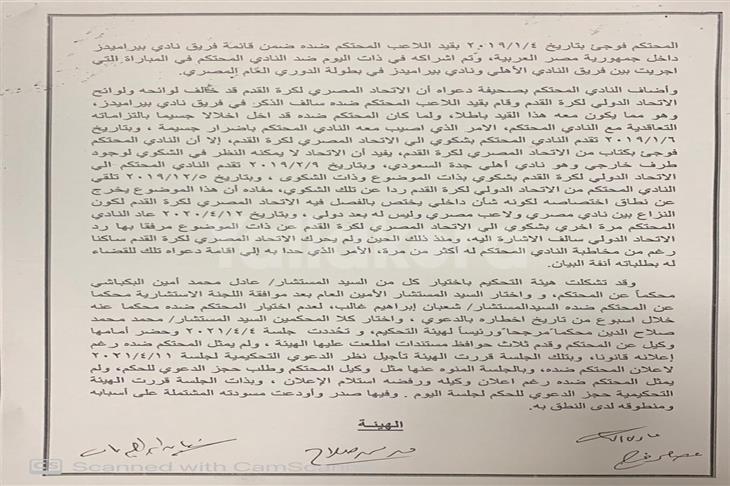 المحتكم فوجئ بتاريخ ٢٠١٩/١/٤ بقيد اللاعب المحتكم ضده ضمن قائمة فريق نادي بيراميدز
داخل جمهورية مصر العربية، وتم اشراكه في ذات اليوم ضد النادي المحتكم في المباراة التي
اجريت بين فريق النادي الأهلي ونادي بيراميدز في بطولة الدوري العام المصري.
وأضاف النادي المحتكم بصحيفة دعواه أن الاتحاد المصري لكرة القدم قد خالف لوائحه ولوائح
الاتحاد الدولي لكرة القدم وقام بقيد اللاعب المحتكم ضده سالف الذكر في فريق نادي بيراميدز،
وهو مما يكون معه هذا القيد باطلا، ولما كان المحتكم ضده قد اخل اخلالا جسيما بالتزاماته
التعاقدية مع النادي المحتكم، الامر الذي اصيب معه النادي المحتكم باضرار جسيمة ، وبتاريخ
٢٠١٩/١/٦ تقدم النادي المحتكم بشكوي الي الاتحاد المصري لكرة القدم، إلا أن النادي المحتكم
فوجئ بكتاب من الاتحاد المصري لكرة القدم، يفيد أن الاتحاد لا يمكنه النظر في الشكوي لوجود
طرف خارجي وهو نادي أهلي جدة السعودي، وبتاريخ ٢٠١٩/٢/٩ تقدم النادي المحتكم الي
الاتحاد الدولي لكرة القدم بشكوي بذات الموضوع وذات الشكوى ، وبتاريخ ٢٠١٩/١٢/٥ تلقي
النادي المحتكم من الاتحاد الدولي لكرة القدم ردا عن تلك الشكوي، مفاده أن هذا الموضوع يخرج
عن نطاق اختصاصه لكونه شأن داخلي يختص بالفصل فيه الاتحاد المصري لكرة القدم لكون
النزاع بين نادي مصري ولاعب مصري وليس له بعد دولي ، وبتاريخ ٢٠٢٠/٤/١٢ عاد النادي
المحتكم مرة اخري بشكوي الي الاتحاد المصري لكرة القدم عن ذات الموضوع مرفقا بها رد
الاتحاد الدولي سالف الاشارة اليه، ومنذ ذلك الحين ولم يحرك الاتحاد المصري لكرة القدم ساكنا
رغم من مخاطبة النادي المحتكم له أكثر من مرة، الأمر الذي حدا به إلي اقامة دعواه تلك للقضاء
له بطلباته أنفة البيان.
وقد تشكلت هيئة التحكيم باختيار كل من السيد المستشار/ عادل محمد أمين البكباشي
محكماً عن المحتكم، و اختار السيد المستشار الأمين العام بعد موافقة اللجنة الاستشارية محكما
عن المحتكم ضده السيدالمستشار/ شعبان إبراهيم غالب، لعدم اختيار المحتكم ضده محكما عنه
خلال اسبوع من تاريخ اخطاره بالدعوي ، واختار كلا المحكمين السيد المستشار/ محمد محمد
صلاح الدين محكماً مرجحاً ورئيساً لهيئة التحكيم، و تحددت جلسة ٢٠٢١/٤/٤ وحضر أمامها
وكيل عن المحتكم وقدم ثلاث حوافظ مستندات اطلعت عليها الهيئة ، ولم يمثل المحتكم ضده رغم
إعلانه قانونا، وبتلك الجلسة قررت الهيئة تأجيل نظر الدعوي التحكيمية لجلسة ٢٠٢١/٤/١١
لاعلان المحتكم ضده، وبالجلسة المنوه عنها مثل وكيل المحتكم وطلب حجز الدعوي للحكم، ولم
يمثل المحتكم ضده رغم اعلان وكيله ورفضه استلام الإعلان ، وبذات الجلسة قررت الهيئة
التحكيمية حجز الدعوي للحكم لجلسة اليوم . وفيها صدر وأودعت مسودته المشتملة على أسبابه
ومنطوقه لدى النطق به.
الهيئة
CS Scanned with CamScanner